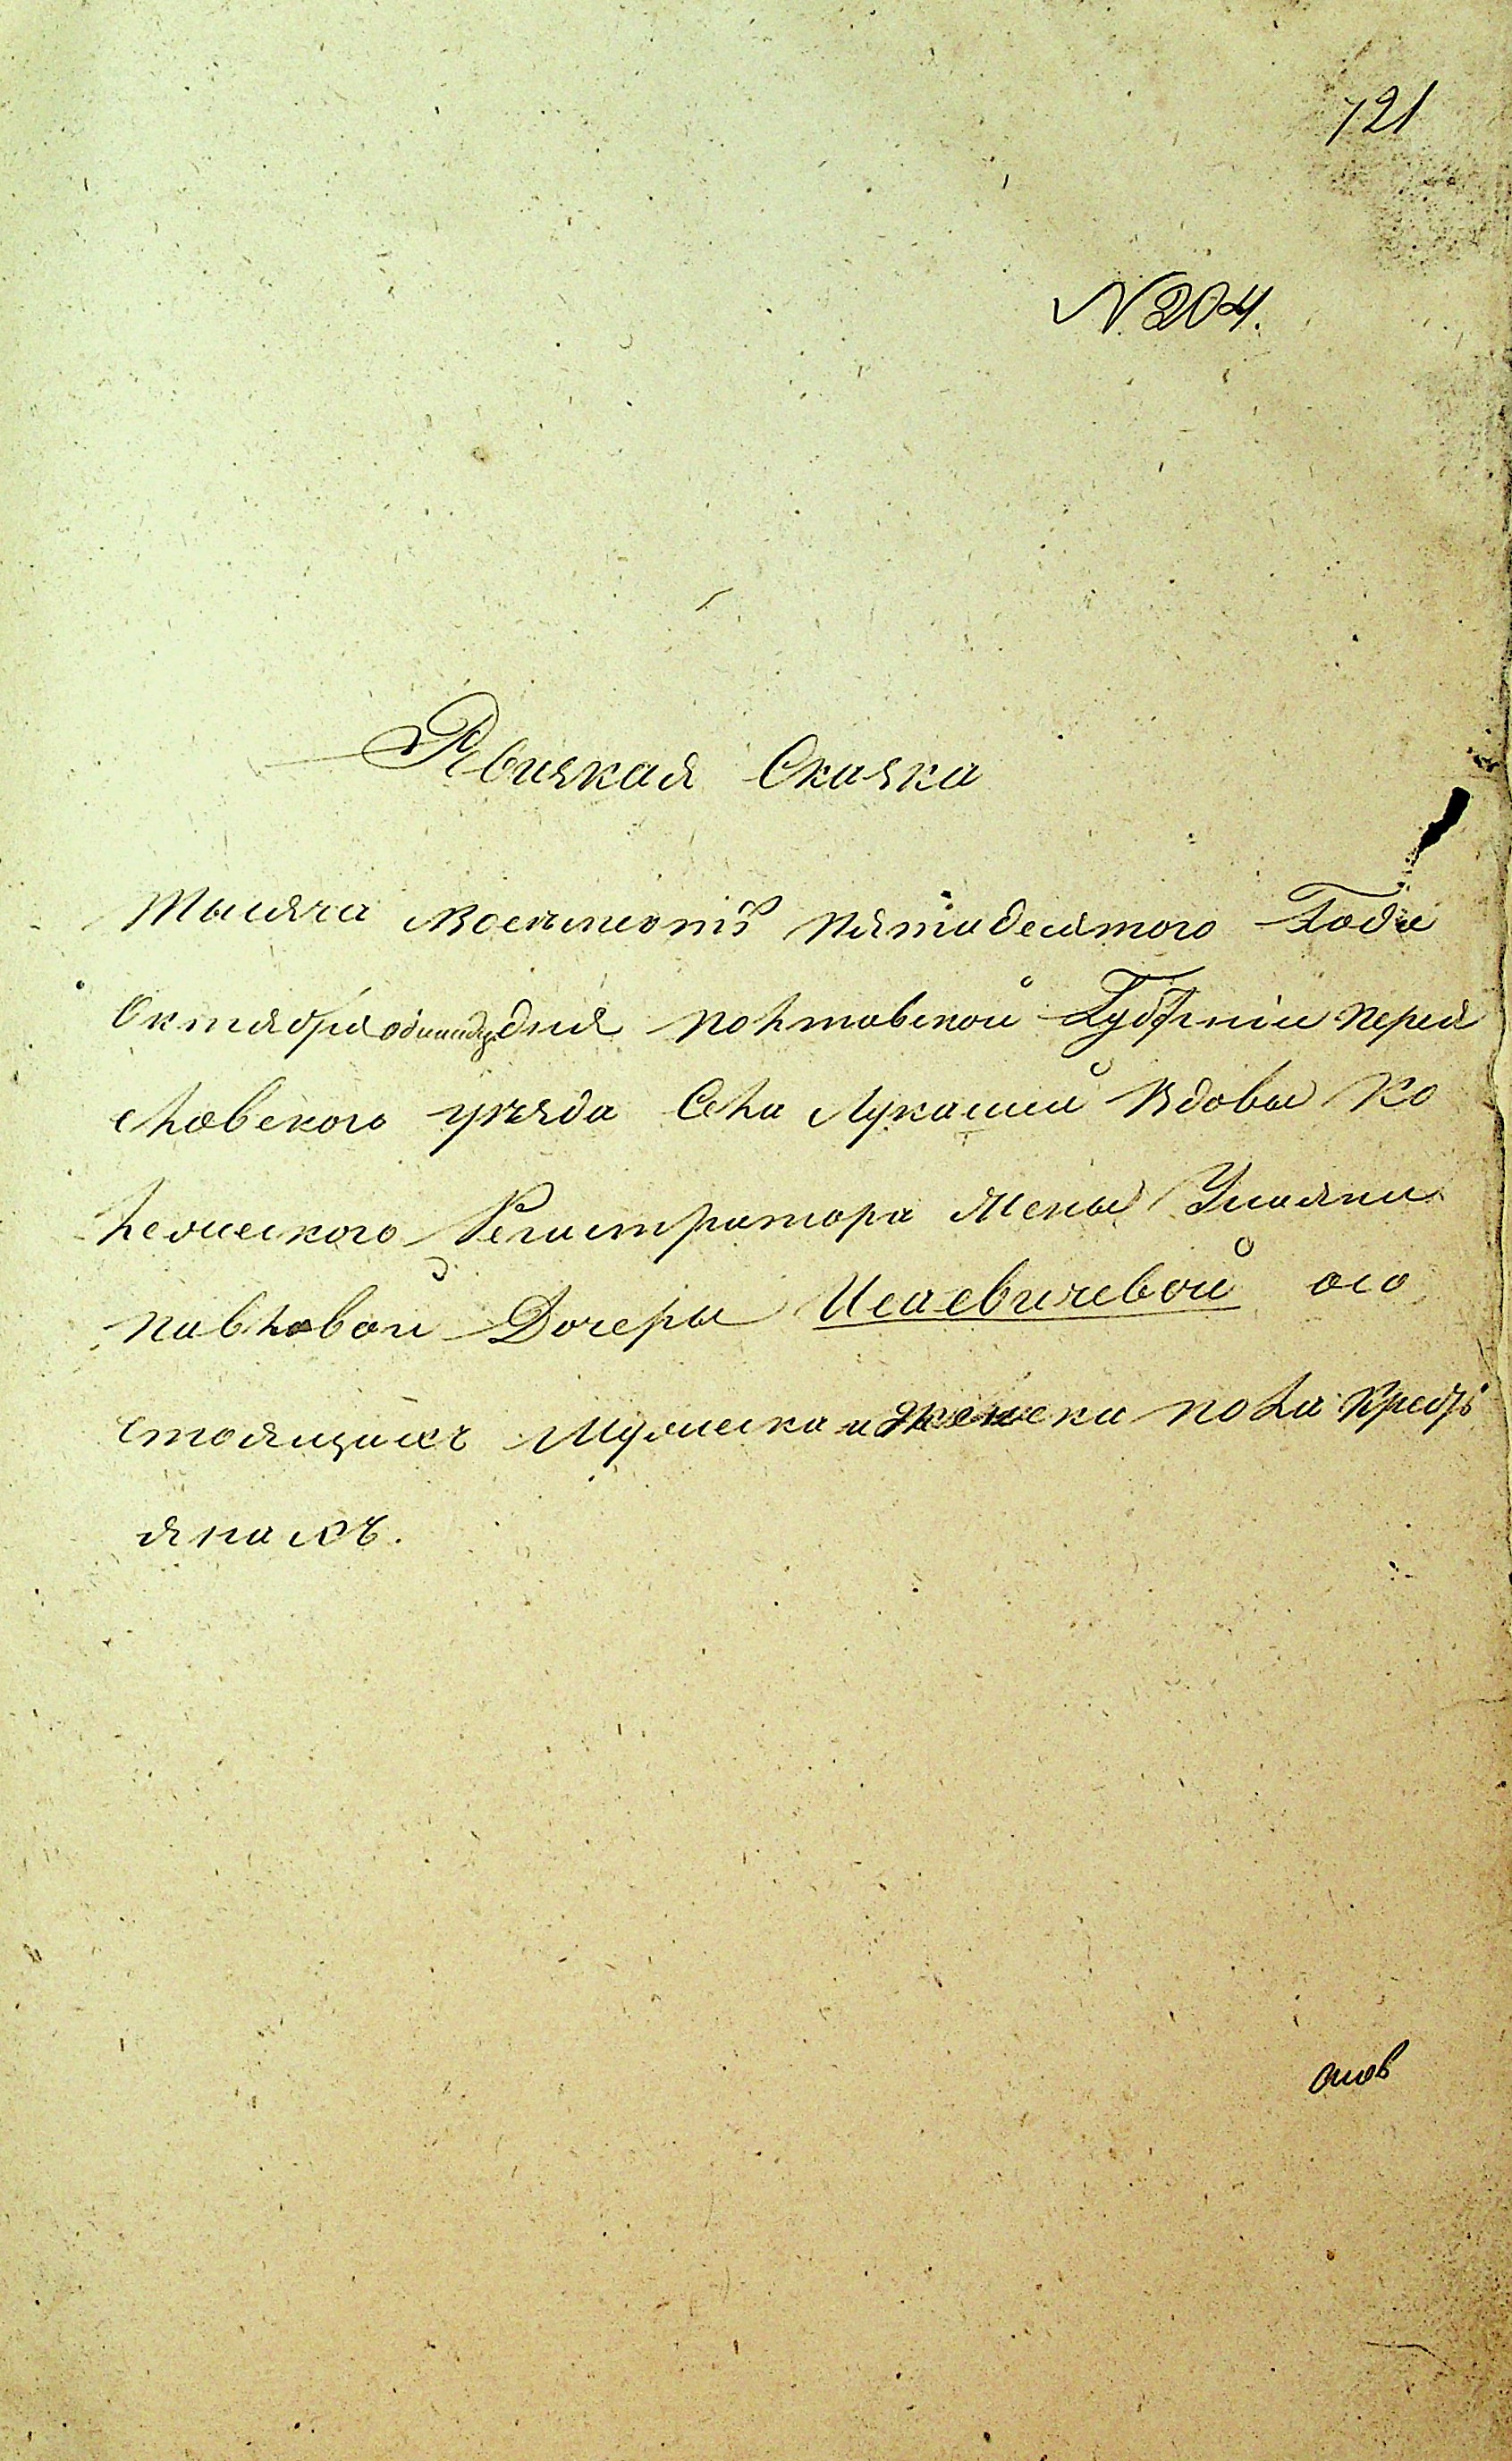 721
N 204.
Ревизкая Сказка
Тысяча Восемсотъ пятидесятого Года
Октября одинадц. дня Полтавской Губерніи Перея
славского уѣзда Села Лукашей Вдовы Ко
лежского Регистратора жены Ульяны
Павловой Дочеры Исаевичевой о со
стоящихъ Мужеска и Женска пола Кресть
янахъ.